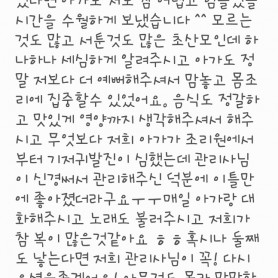 시간을 수월하게 보냈습니다 ^^ 모르는
것도 많고 서툰것도 많은 초산모인데 하
나하나 세심하게 알려주시고 아가도 정
말 저보다 더 예뻐해주셔서 맘놓고 몸조
리에 집중할수 있었어요. 음식도 정갈하
고 맛있게 영양까지 생각해주셔서 해주
시고 무엇보다 저희 아가가 조리원에서
부터 기저귀발진이 심했는데 관리사님
이 신경써서 관리해주신 덕분에 이틀만
에 좋아졌더라구요ㅜㅜ매일 아가랑 대
화해주시고 노래도 불러주시고 저희가
참 복이 많은것같아요 ㅎㅎ혹시나 둘째
도 낳는다면 저희 관리사님이 꼭! 다시